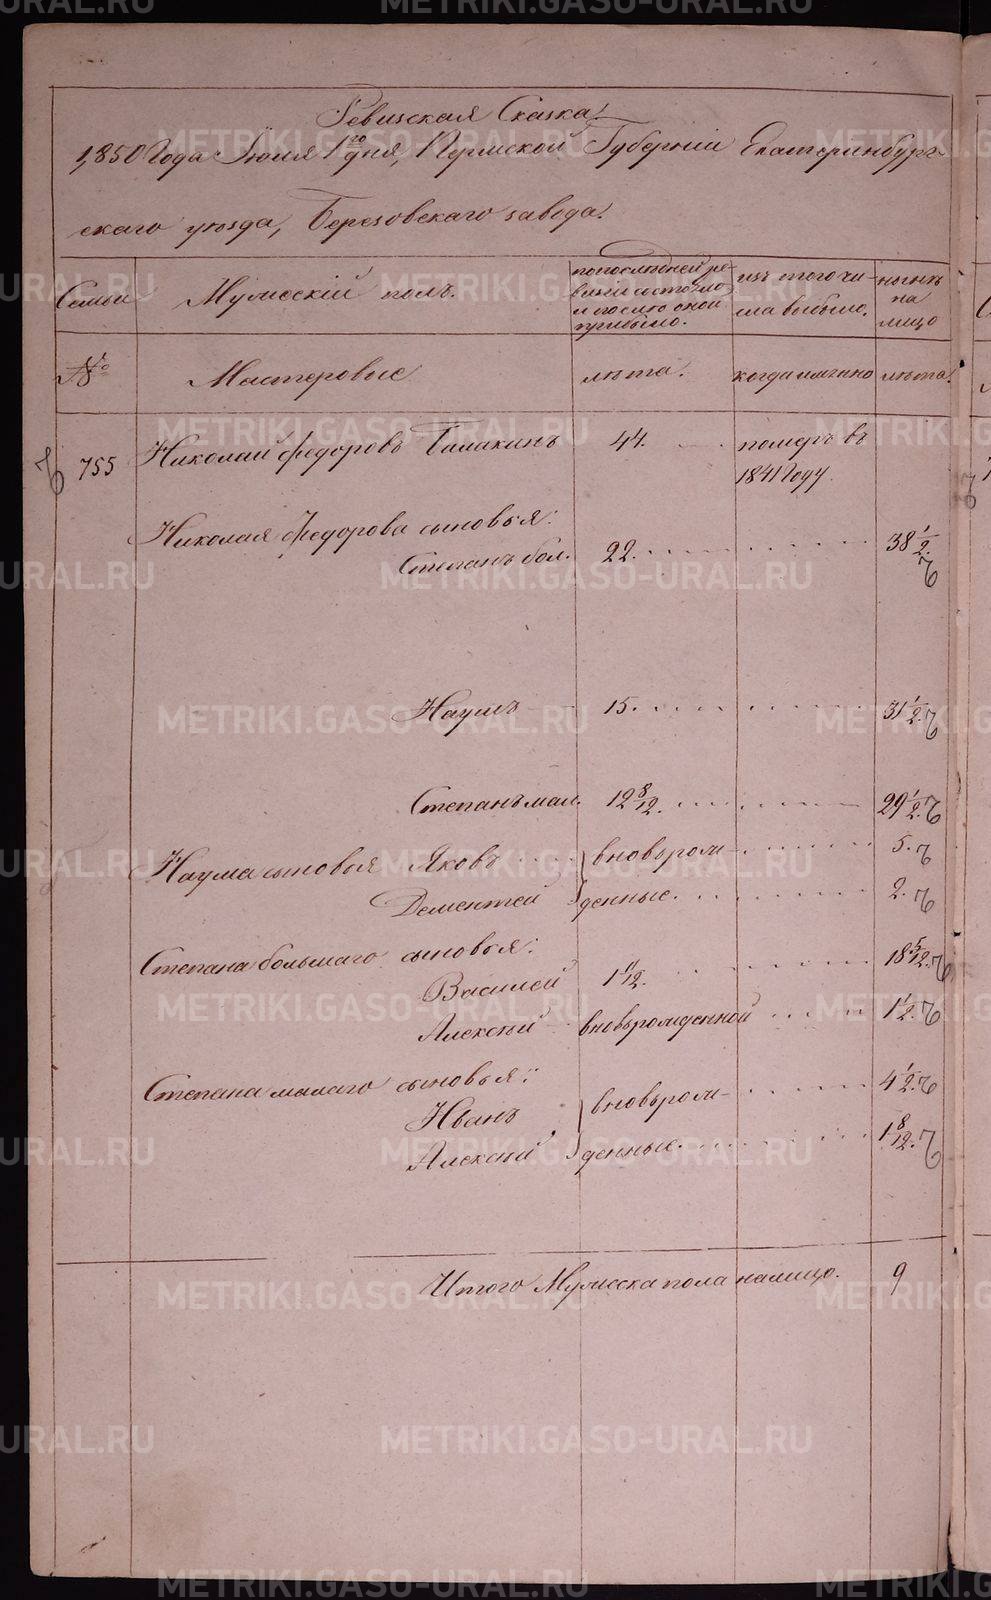 Ревизская Сказка.
1850 Года Июля 1го дня, Пермской Губерніи Екатеринбург-
скаго уѣзда, Березовскаго завода.
Семьи
Мужескій полъ.
по послѣдней ре-
визіи состояло
и послѣ оной
прибыло.
изъ того чи-
сла выбыло.
нынѣ
на
лицо
№
Мастеровые
лѣта.
когда имянно
лѣта.
755 Николай Федоровъ 44. померъ въ
1841 Году.
Николая Федорова сыновья:
Степанъ бол. 22. 38 1/2.
Наумъ 15. 31 1/2.
Степанъ мал. 12 8/12. 29 1/2.
Наума сыновья Яковъ вновьрож- 5.
Дементей денные. 2.
Степана большаго сыновья:
Василей 1 11/12. 18 5/12.
Алексѣй вновьрожденной 1 1/2.
Степана малаго сыновья:
Иванъ вновьрож- 4 1/2.
Алексѣй денные. 1 8/12.
Итого Мужеска пола налицо. 9
METRIKI.GASO-URAL.RU